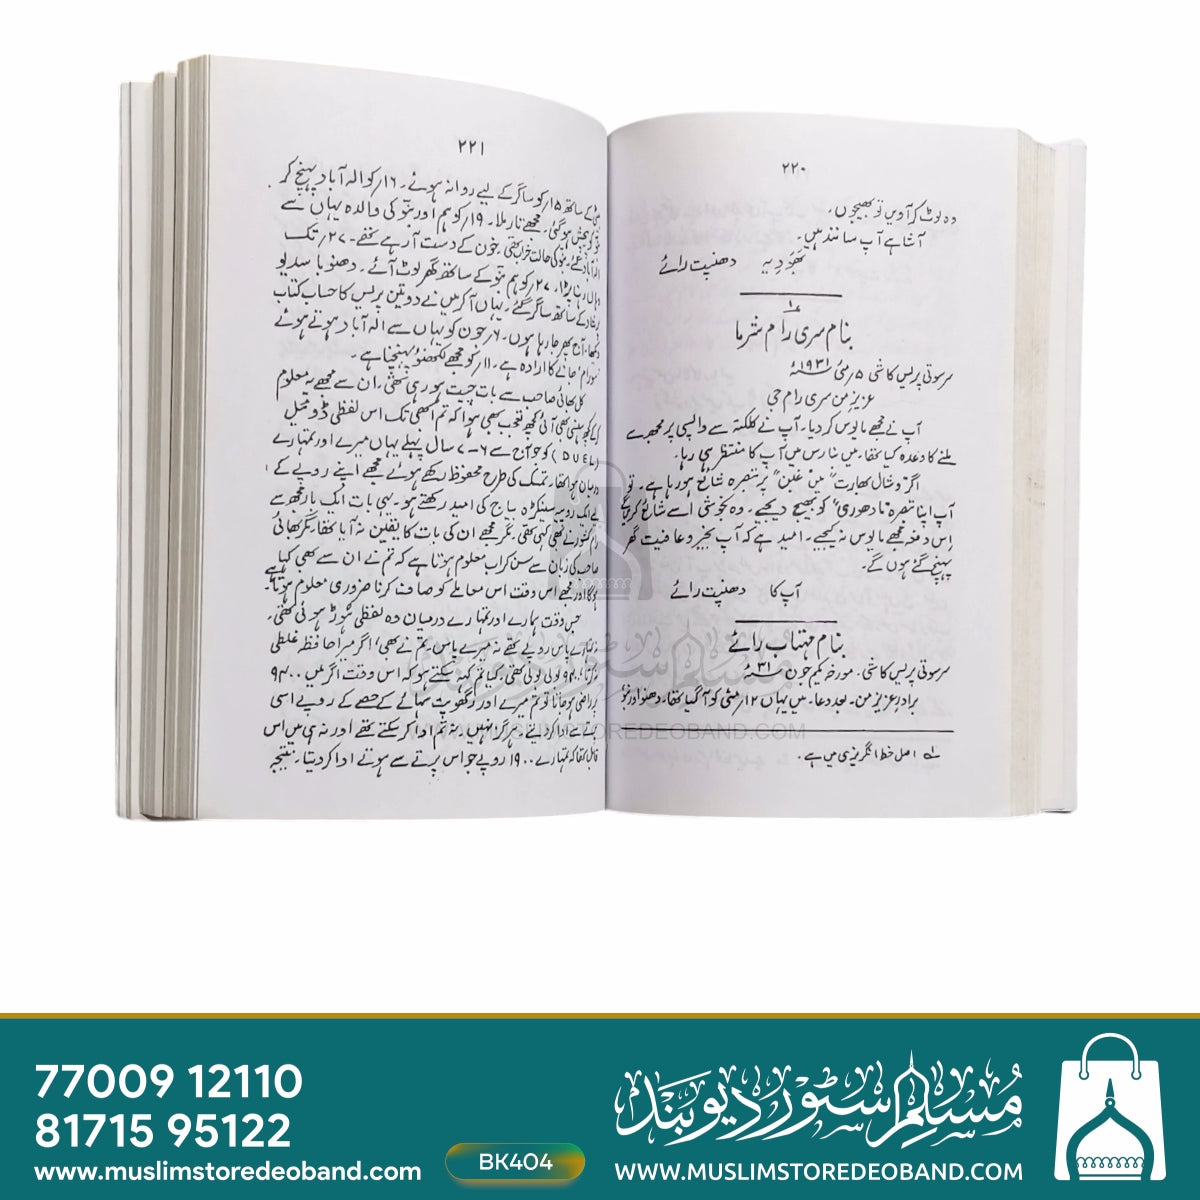 ۲۲۰
وہ لوٹ کر آویں تو بھیجوں۔
آشا ہے آپ سانند ہیں۔
بھودیہ دھنپت رائے
بنام سری رام شرما
سرسوتی پریس کاشی ۵؍مئی ۱۹۳۱ء
عزیز من سری رام جی
آپ نے مجھے مایوس کر دیا۔ آپ نے کلکتہ سے واپسی پر مجھ سے
ملنے کا وعدہ کیا تھا۔ میں بنارس میں آپ کا منتظر ہی رہا۔
اگر وشال بھارت میں "غبن" پر تبصرہ شائع ہو رہا ہے۔ تو
آپ اپنا تبصرہ "مادھوری" کو بھیج دیجیے۔ وہ بخوشی اسے شائع کریں گے
اس دفعہ مجھے مایوس نہ کیجیے۔ امید ہے کہ آپ بخیر و عافیت گھر
پہنچ گئے ہوں گے۔
آپ کا دھنپت رائے
بنام مہتاب رائے
سرسوتی پریس کاشی۔ مورخہ یکم جون ۳۱ء
برادر عزیز من۔ بعد دعا۔ میں یہاں ۱۲؍مئی کو آ گیا تھا۔ دھنو اور بنو
۱؎ اصل خط انگریزی میں ہے۔
۲۲۱
کے ساتھ ۱۵؍کو ساگر کے لیے روانہ ہوئے۔ ۱۶؍کو الہ آباد پہنچ کر
ہو گئی۔ مجھے تار ملا۔ ۱۹؍کو ہم اور بنو کی والدہ یہاں سے
الہ آباد گئے۔ بنو کی حالت خراب تھی۔ خون کے دست آ رہے تھے۔ ۲۷؍تک
وہاں رہنا پڑا۔ ۲۷؍کو ہم بنو کے ساتھ گھر لوٹ آئے۔ دھنو باسدیو
کے ساتھ ساگر گئے۔ یہاں آ کر میں نے دو تین پریس کا حساب کتاب
دیکھا۔ آج پھر جا رہا ہوں۔ ۶؍جون کو یہاں سے الہ آباد ہوتے ہوئے
جانے کا ارادہ ہے۔ ۱۱؍کو مجھے لکھنؤ پہنچنا ہے۔
کل بھائی صاحب سے بات چیت ہو رہی تھی، ان سے مجھے یہ معلوم
کر کچھ ہنسی بھی آئی کچھ تعجب بھی ہوا کہ تم ابھی تک اس لفظی ڈوئیل
(DUEL) کو جو آج سے ۶-۷ سال پہلے یہاں میرے اور تمہارے
درمیان ہوا تھا۔ تمسک کی طرح محفوظ رکھے ہوئے مجھے اپنے روپے کے
لیے ایک روپیہ سینکڑہ بیاج کی امید رکھتے ہو۔ یہی بات ایک بار مجھ سے
رام کشور نے بھی کہی تھی۔ مگر مجھے ان کی بات کا یقین نہ آیا تھا۔ مگر بھائی
صاحب کی زبان سے سن کر اب معلوم ہوتا ہے کہ تم نے ان سے بھی کہا
ہوگا اور مجھے اس وقت اس معاملے کو صاف کرنا ضروری معلوم ہوتا ہے
جس وقت ہمارے اور تمہارے درمیان وہ لفظی ہوڑ ہوئی تھی۔
تمہارے پاس روپے تھے نہ میرے پاس۔ تم نے بھی، اگر میرا حافظہ غلطی
۹۴۰۰ بولی بولی تھی۔ کیا تم کہہ سکتے ہو کہ اس وقت اگر میں ۹۴۰۰
پر راضی ہو جاتا تو تم میرے اور رگھوپت سہائے کے حصے کے روپے اسی
ادا کر دیتے۔ ہرگز نہیں۔ نہ تم ادا کر سکتے تھے اور نہ ہی میں اس
قابل تھا کہ تمہارے ۱۹۰۰ روپے جو اس پرتے سے ہوتے ادا کر دیتا۔ نتیجہ
مسلم سٹور دیوبند
WWW.MUSLIMSTOREDEOBAND.COM
77009 12110
81715 95122
www.muslimstoredeoband.com
BK404
مسلم سٹور دیوبند
WWW.MUSLIMSTOREDEOBAND.COM